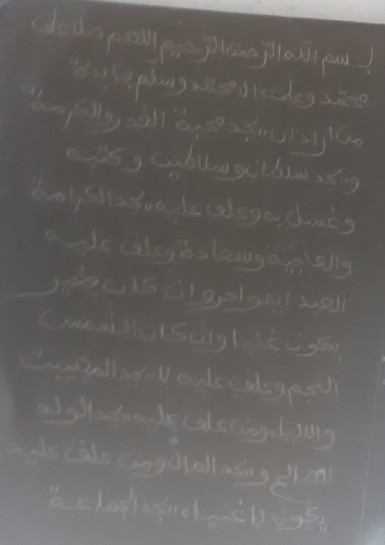 بسم الله الرحمن الرحيم اللهم صل على
محمد وعلى ءال محمد وسلم بايدة
من اراد ان يجد محبة القدر والكرمة
ويجد سلطان وسلاطين وكتبه
وغسل به وعلف عليه يجد الكرامة
والعابية وسعادة وعلف عليه
العبد ابهوا حروان كان بفير
يكون غنيا وان كان الشمس
النجم وعلف عليه لا يجد المصيبت
ومن علف عليه يجد الولد
الصالح ويجد المال ومن علف عليه
يكون يجد الجماعة